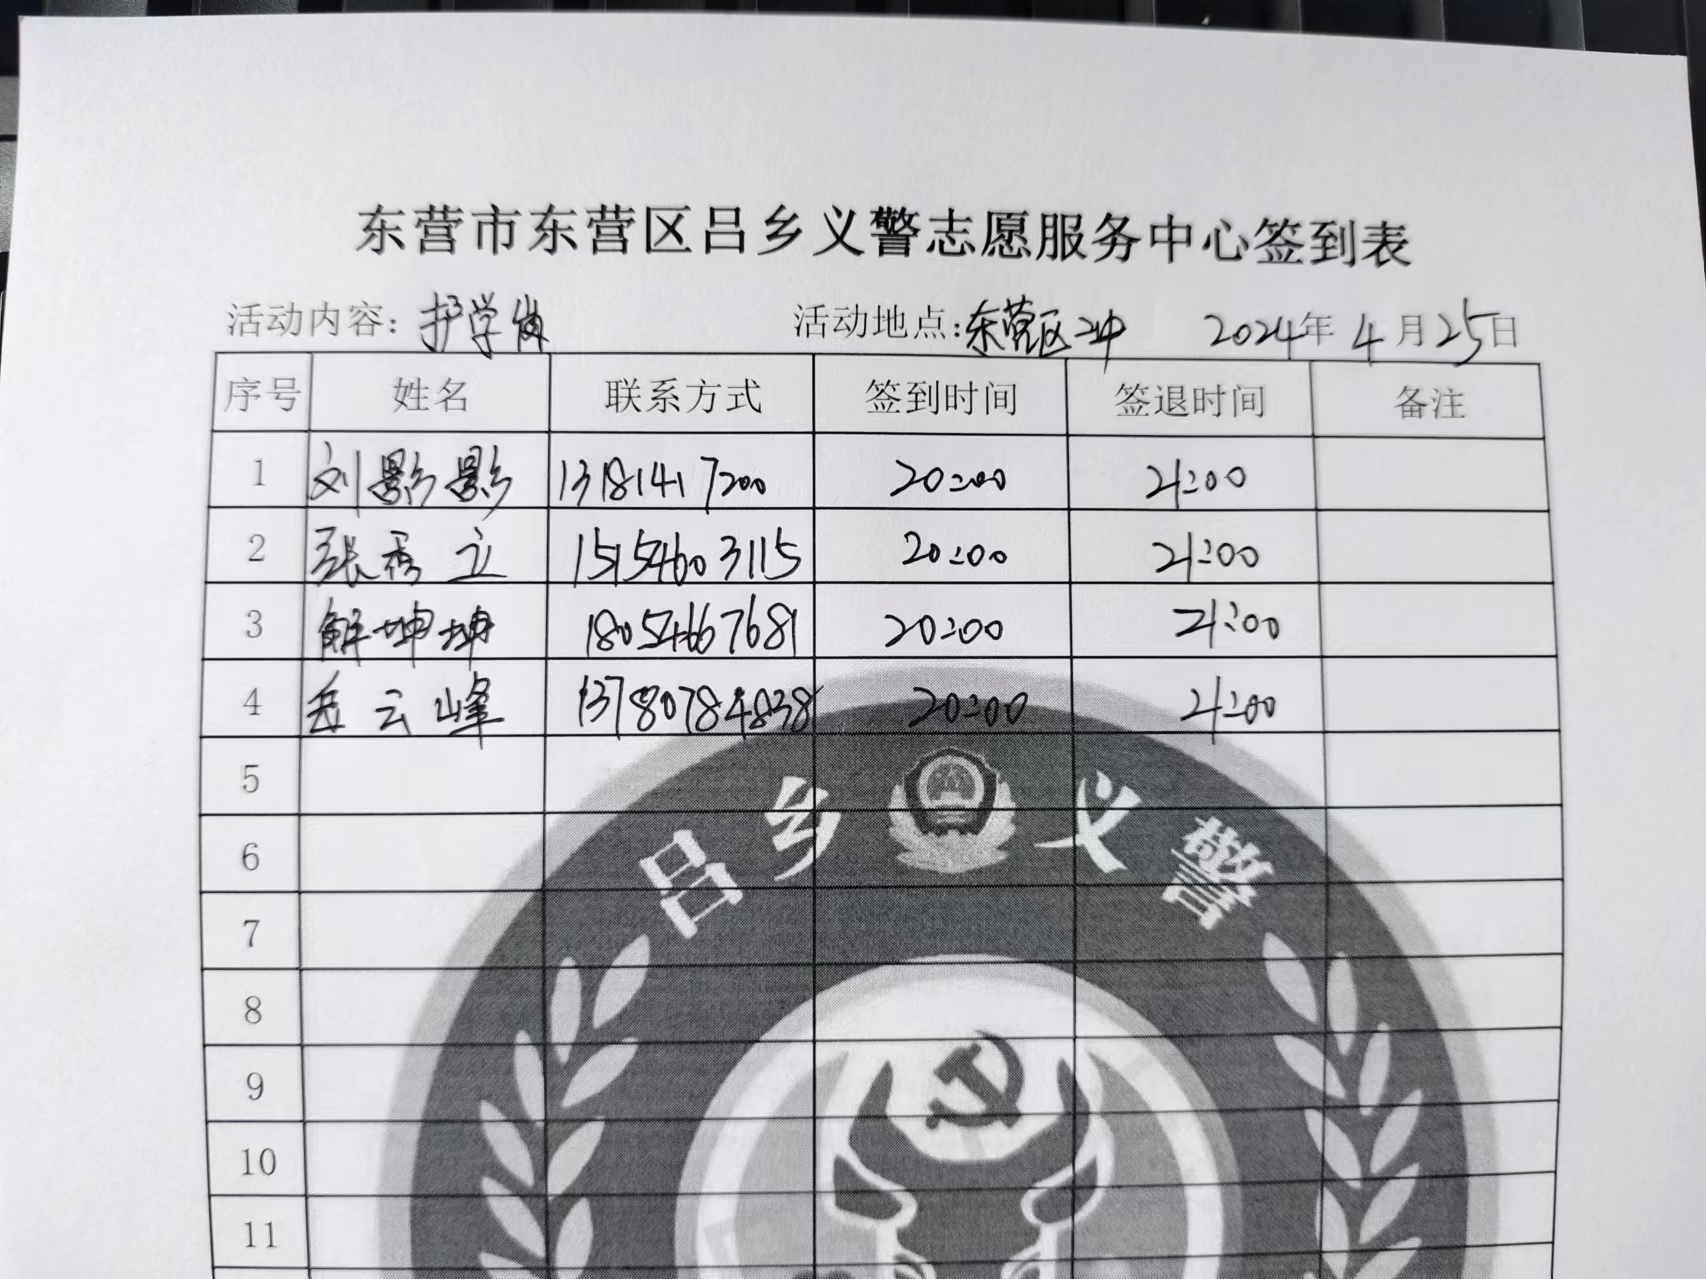 东营市东营区吕乡义警志愿服务中心签到表
活动内容：护学岗 活动地点：东营区二中 2024年4月25日
序号 姓名 联系方式 签到时间 签退时间 备注
1 刘影影 13181417200 20:00 21:00
2 张秀立 15154603115 20:00 21:00
3 解坤坤 18054667681 20:00 21:00
4 岳云峰 13780784838 20:00 21:00
5
吕乡义警
6
7
8
9
10
11